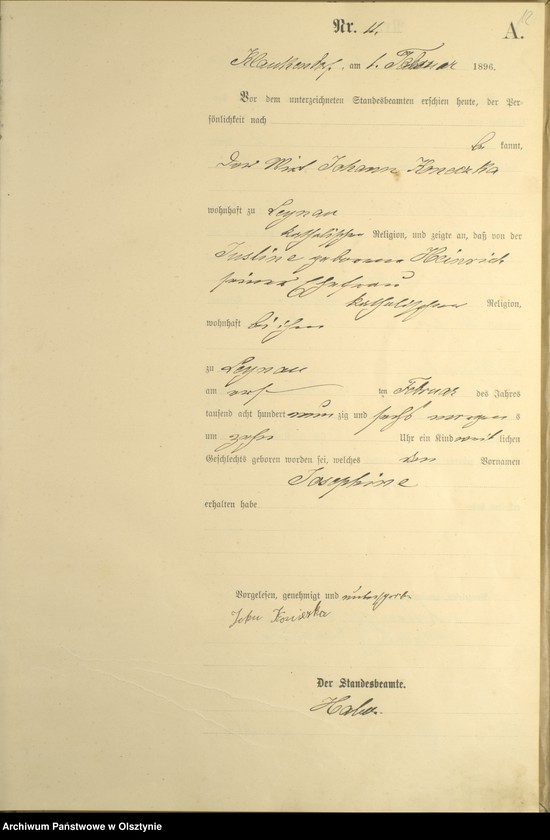 12
Nr. 11.
A.
Klaukendorf, am 1. Februar 1896.
Vor dem unterzeichneten Standesbeamten erschien heute, der Per-
sönlichkeit nach
be kannt,
Der Wirt Johann
wohnhaft zu Leynau
katholischer Religion, und zeigte an, daß von der
Justine geborenen Heinrich
seiner Ehefrau
katholischer Religion,
wohnhaft bei ihm
zu Leynau
am ersten Februar des Jahres
tausend acht hundert neun zig und sechs morgens
um zehn Uhr ein Kind weiblichen
Geschlechts geboren worden sei, welches den Vornamen
Josephine
erhalten habe
Vorgelesen, genehmigt und
Der Standesbeamte.
Archiwum Państwowe w Olsztynie